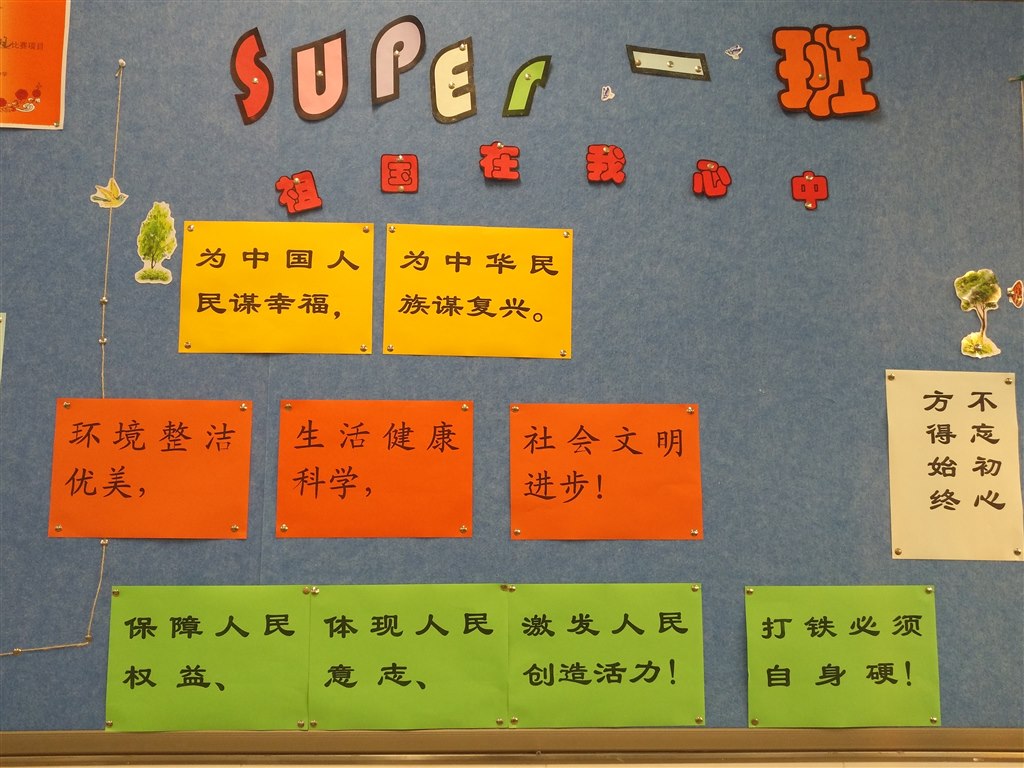 比赛项目
SUPer 一 班
祖国在我心中
为中国人
民谋幸福，
为中华民
族谋复兴。
环境整洁
优美，
生活健康
科学，
社会文明
进步！
不忘初心
方得始终
保障人民
权益、
体现人民
意志、
激发人民
创造活力！
打铁必须
自身硬！